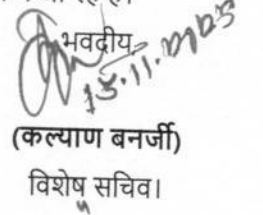 भवदीय,
15.11.2023
(कल्याण बनर्जी)
विशेष सचिव।